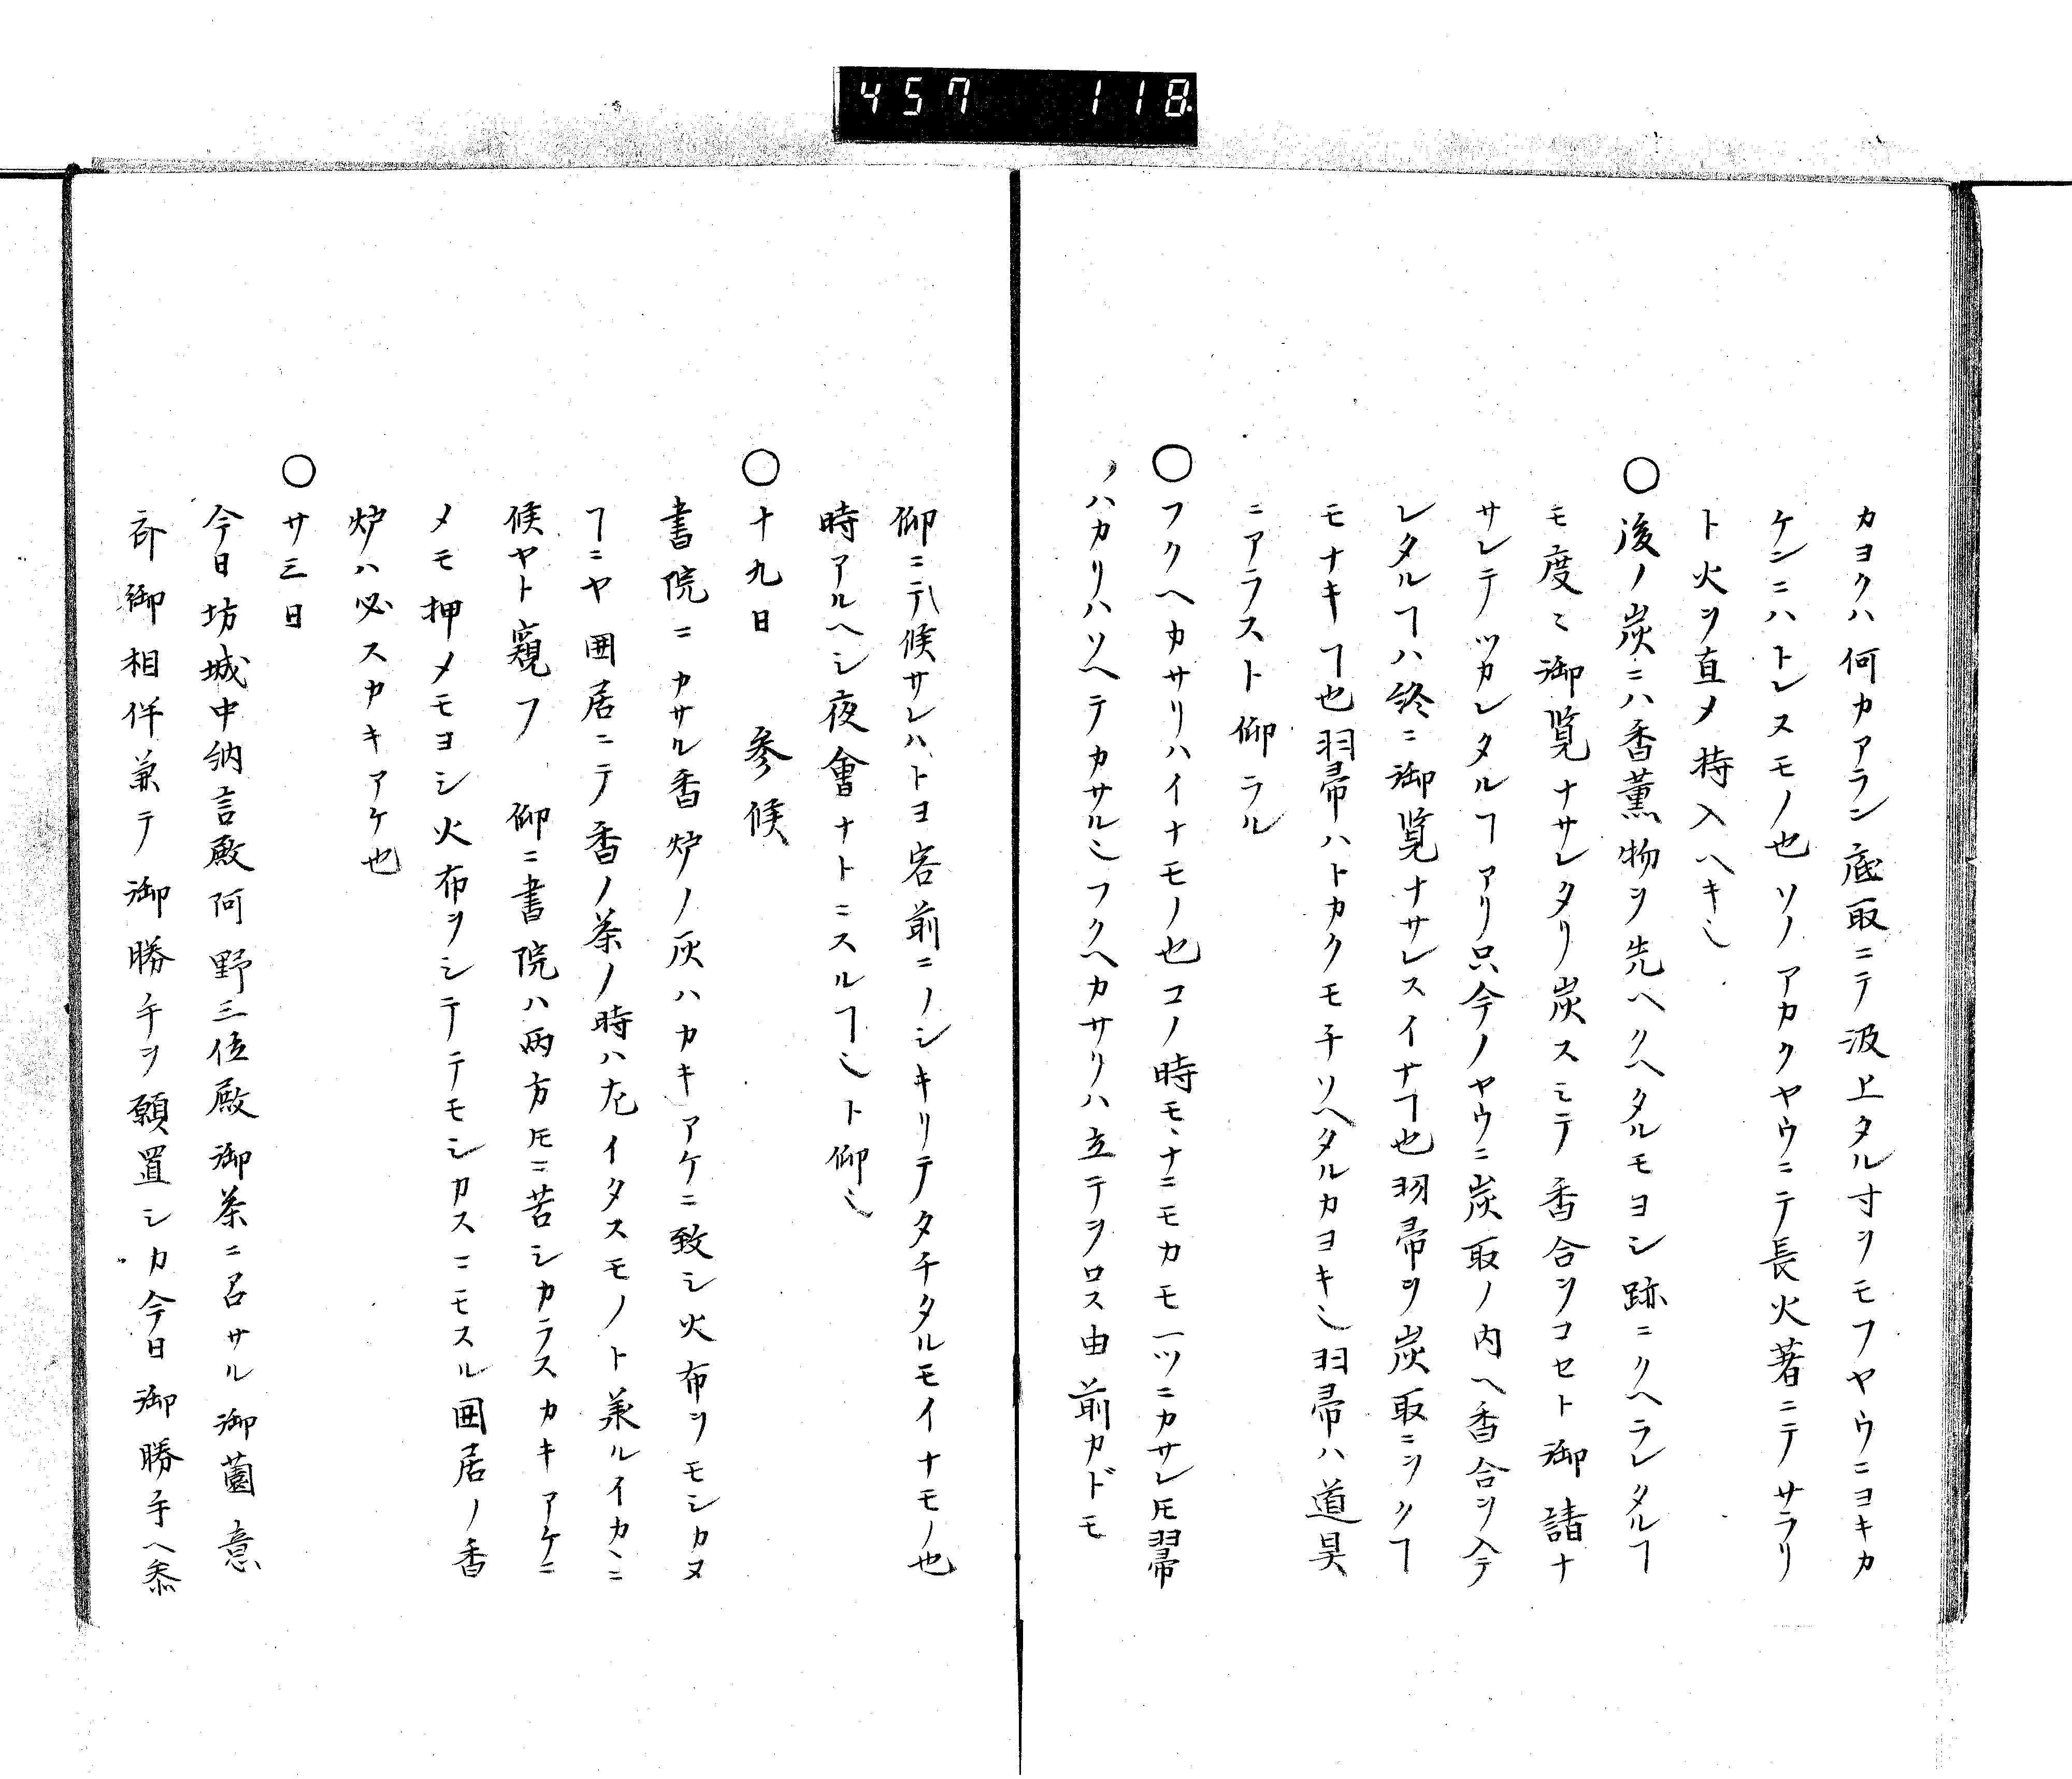 457 118
カヨクハ何カアラン底取ニテ汲上タル寸ヲモフヤウニヨキカ
ケンニハトレヌモノ也ソノアカクヤウニテ長火著ニテサラリ
ト火ヲ直メ持入ヘキ〻
○後ノ炭ニハ香薫物ヲ先ヘクヘタルモヨシ跡ニクヘラレタルヿ
モ度〻御覧ナサレタリ炭スミテ香合ヲコセト御請ナ
サレテツカレタルヿアリ只今ノヤウニ炭取ノ内ヘ香合ヲ入テ
レタルヿハ終ニ御覧ナサレスイナヿ也羽帚ヲ炭取ニヲクヿ
モナキヿ也羽帚ハトカクモチソヘタルカヨキ〻羽帚ハ道具
ニアラスト仰ラル
○フクヘカサリハイナモノ也コノ時モ、ナニモカモ一ツニカサレ𪜈羽帚
ノハカリハソヘテカサル〻フクヘカサリハ立テヲロス由前カドモ
仰ニテ候サレハ、トヨ客前ニノシキリテタチタルモイナモノ也
時アルヘシ夜會ナトニスルヿ〻ト仰〻
○十九日 参候
書院ニカサル香炉ノ灰ハカキアケニ致シ火布ヲモシカヌ
ヿニヤ囲居ニテ香ノ茶ノ時ハ左イタスモノト兼ルイカニニ
候ヤト窺フ 仰ニ書院ハ両方𪜈ニ苦シカラスカキアケニ
メモ押メモヨシ火布ヲシテテモシカスニモスル囲居ノ香
炉ハ必スカキアケ也
○廿三日
今日坊城中納言殿阿野三位殿御茶ニ召サル御薗意
斎御相伴兼テ御勝手ヲ願置シカ今日御勝手ヘ参